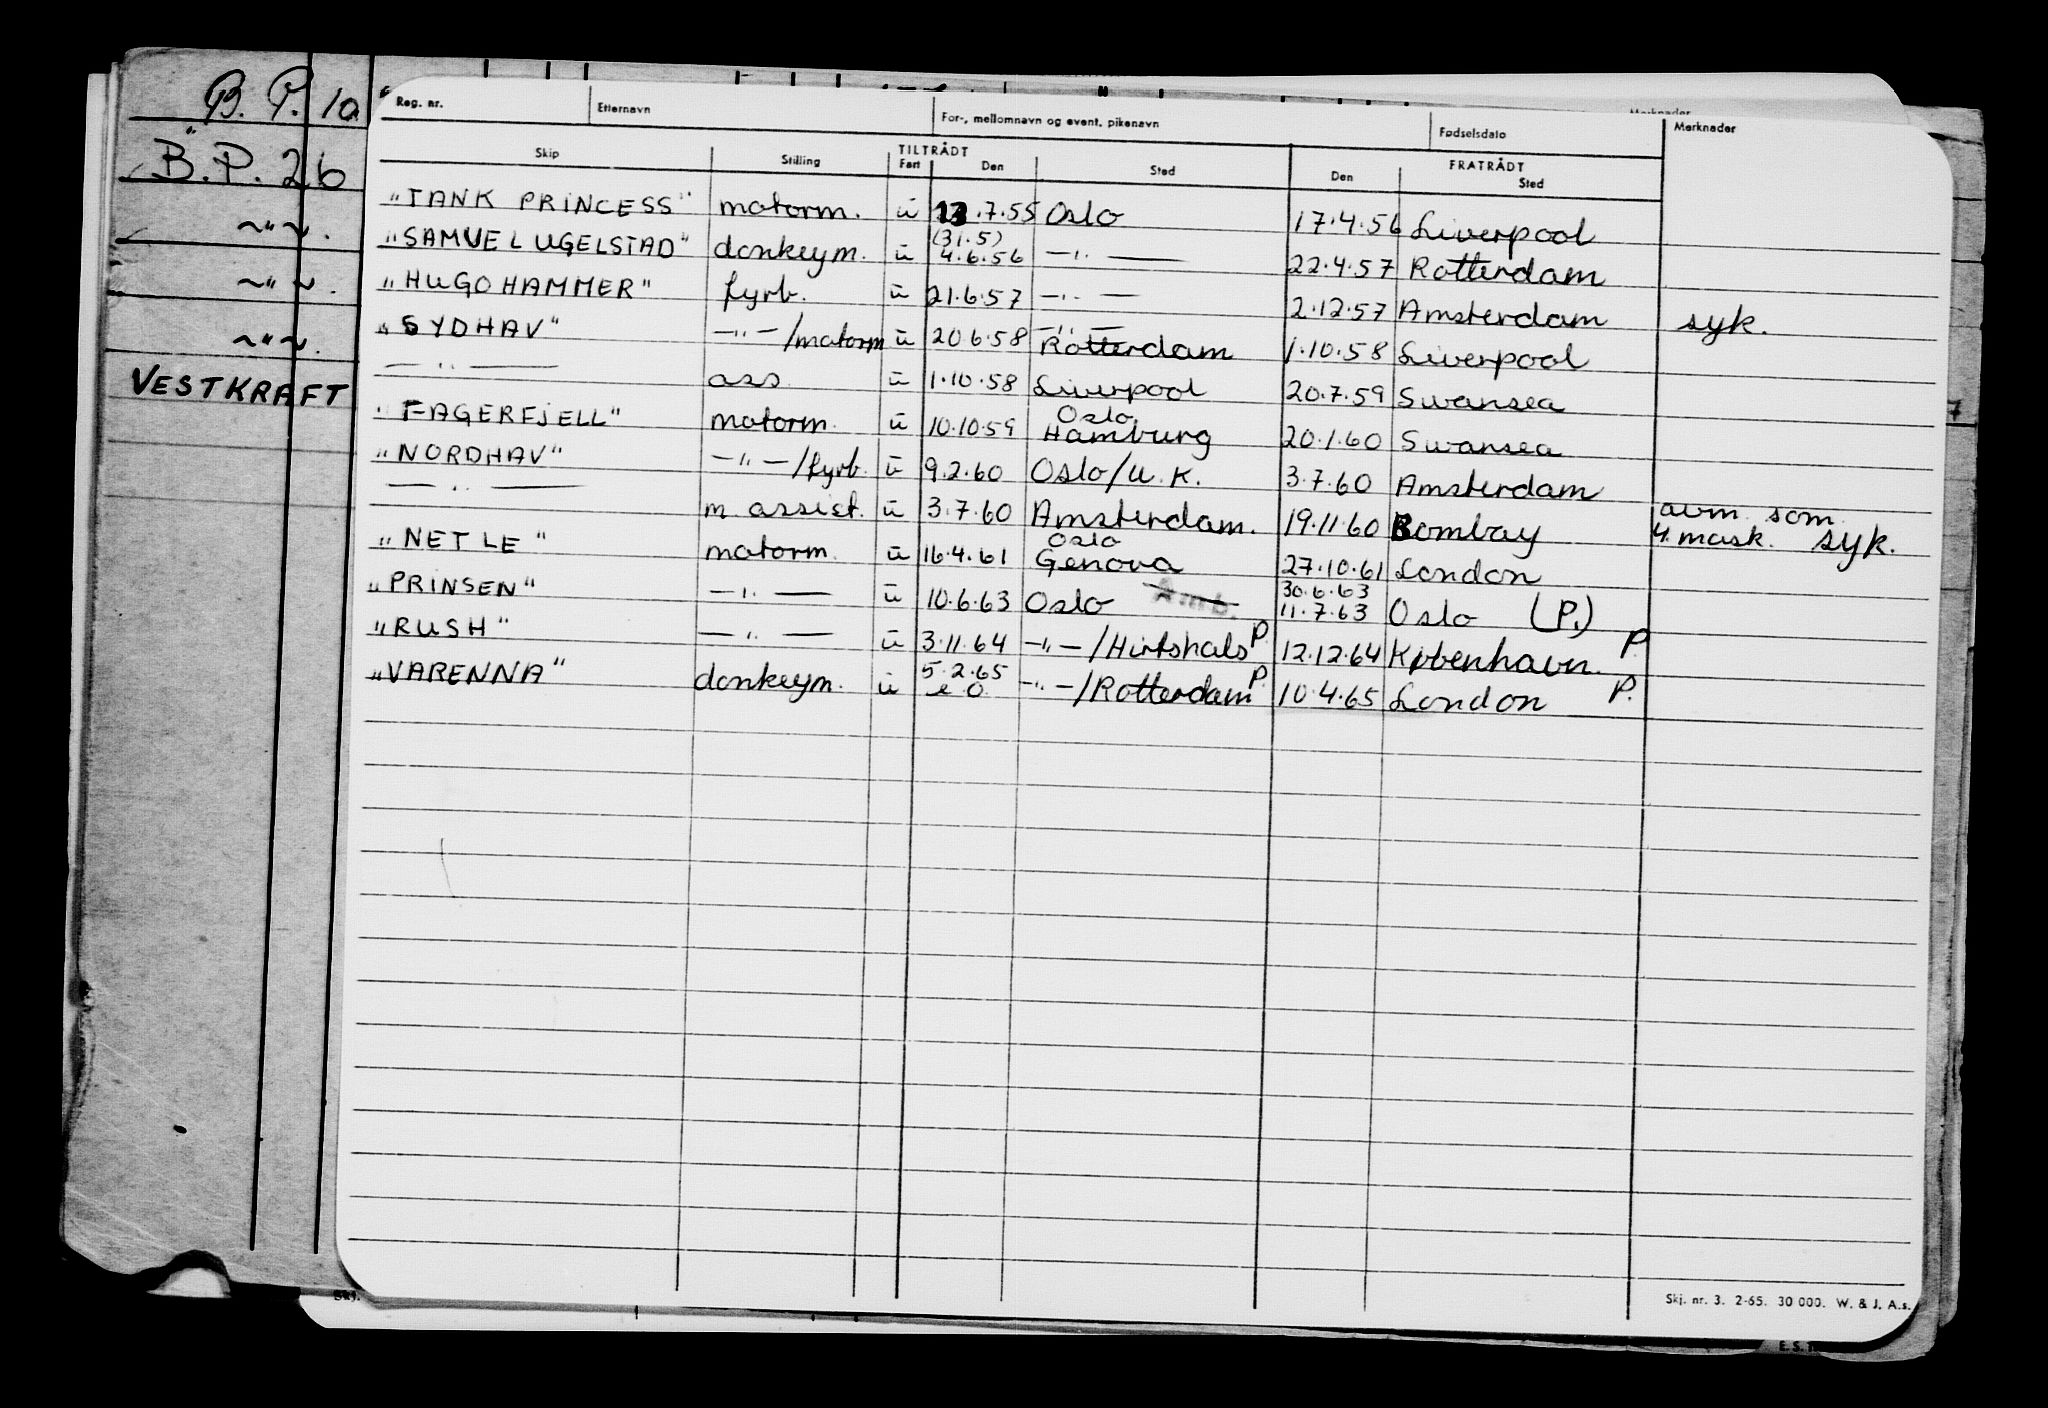 B. P. 10
B. P. 26
~"~.
~"~.
~"~.
VESTKRAFT
Reg. nr. Etternavn For-, mellomnavn og event. pikenavn Fødselsdato Merknader
Skip Stilling TILTRÅDT Fart Den Sted FRATRÅDT Den Sted
"TANK PRINCESS" motorm. u 13.7.55 Oslo 17.4.56 Liverpool
"SAMUEL UGELSTAD" donkeym. u (31.5) 4.6.56 —"— 22.4.57 Rotterdam
"HUGO HAMMER" fyrb. u 21.6.57 —"— 2.12.57 Amsterdam syk.
"SYDHAV" —"—/motorm u 20.6.58 —"— Rotterdam 1.10.58 Liverpool
—"— ass. u 1.10.58 Liverpool 20.7.59 Swansea
"FAGERFJELL" motorm. u 10.10.59 Oslo Hamburg 20.1.60 Swansea
"NORDHAV" —"—/fyrb. u 9.2.60 Oslo/U.K. 3.7.60 Amsterdam
—"— m. assist. u 3.7.60 Amsterdam. 19.11.60 Bombay avm. som 4. mask. syk.
"NETLE" motorm. u 16.4.61 Oslo Genova 27.10.61 London
"PRINSEN" —"— u 10.6.63 Oslo Amb. 30.6.63 11.7.63 Oslo (P.)
"RUSH" —"— u 3.11.64 —"—/Hirtshals P. 12.12.64 København. P.
"VARENNA" donkeym. u 5.2.65 e.o. —"—/Rotterdam P. 10.4.65 London P.
Skj. nr. 3. 2-65. 30 000. W. & J. A.s.